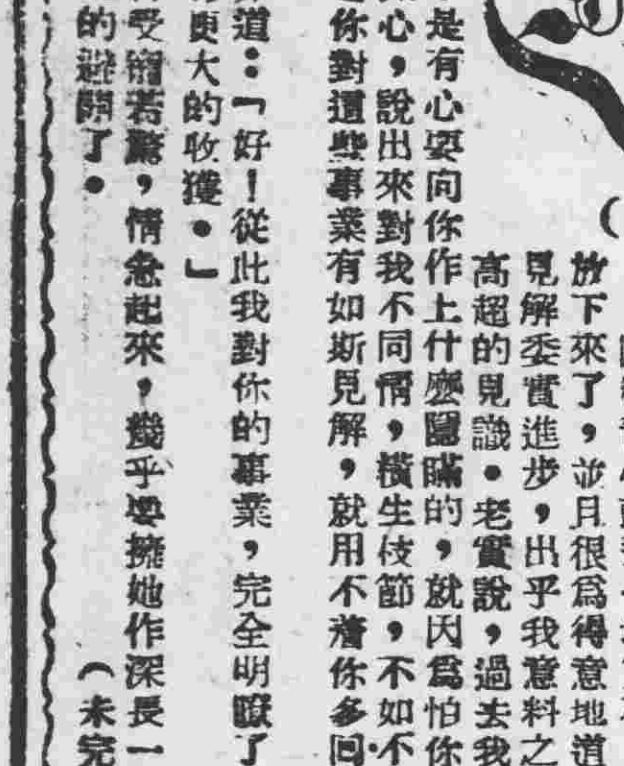 放下來了，並且很爲得意地道
見解委實進步，出乎我意料之
高超的見識。老實說，過去我
是有心要向你作上什麼隱瞞的，就因爲怕你
心，說出來對我不同情，橫生枝節，不如不
你對這些事業有如斯見解，就用不着你多回
道：「好！從此我對你的事業，完全明瞭了
更大的收獲。」
受寵若驚，情急起來，幾乎要擁她作深長一
的避開了。（未完